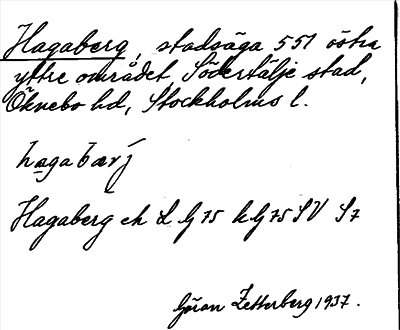 Hagaberg, stadsäga 551 östra
yttre området, Södertälje stad,
Öknebo hd, Stockholms l.
hagabærj
Hagaberg ek L G 75 h G 75 SV S7
Göran Zetterberg 1937.